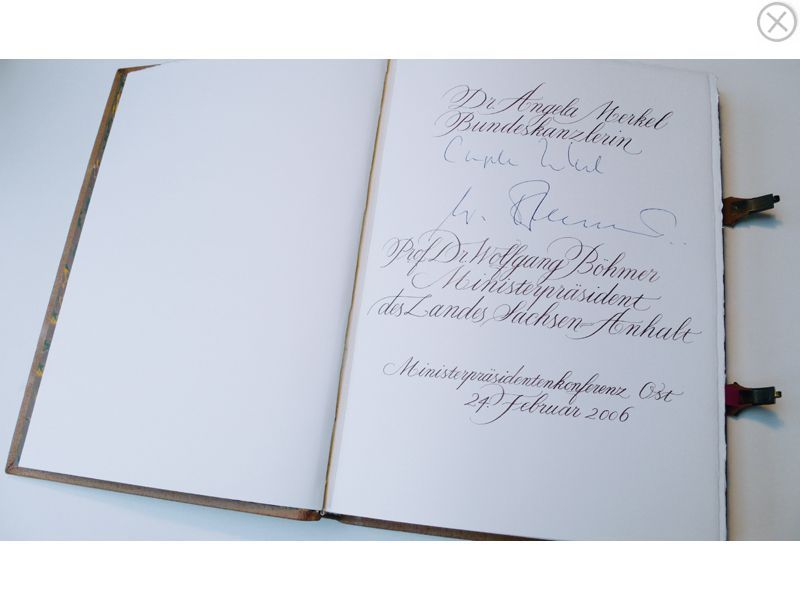 Dr. Angela Merkel
Bundeskanzlerin
Angela Merkel
W. Böhmer
Prof. Dr. Wolfgang Böhmer
Ministerpräsident
des Landes Sachsen-Anhalt
Ministerpräsidentenkonferenz Ost
24. Februar 2006